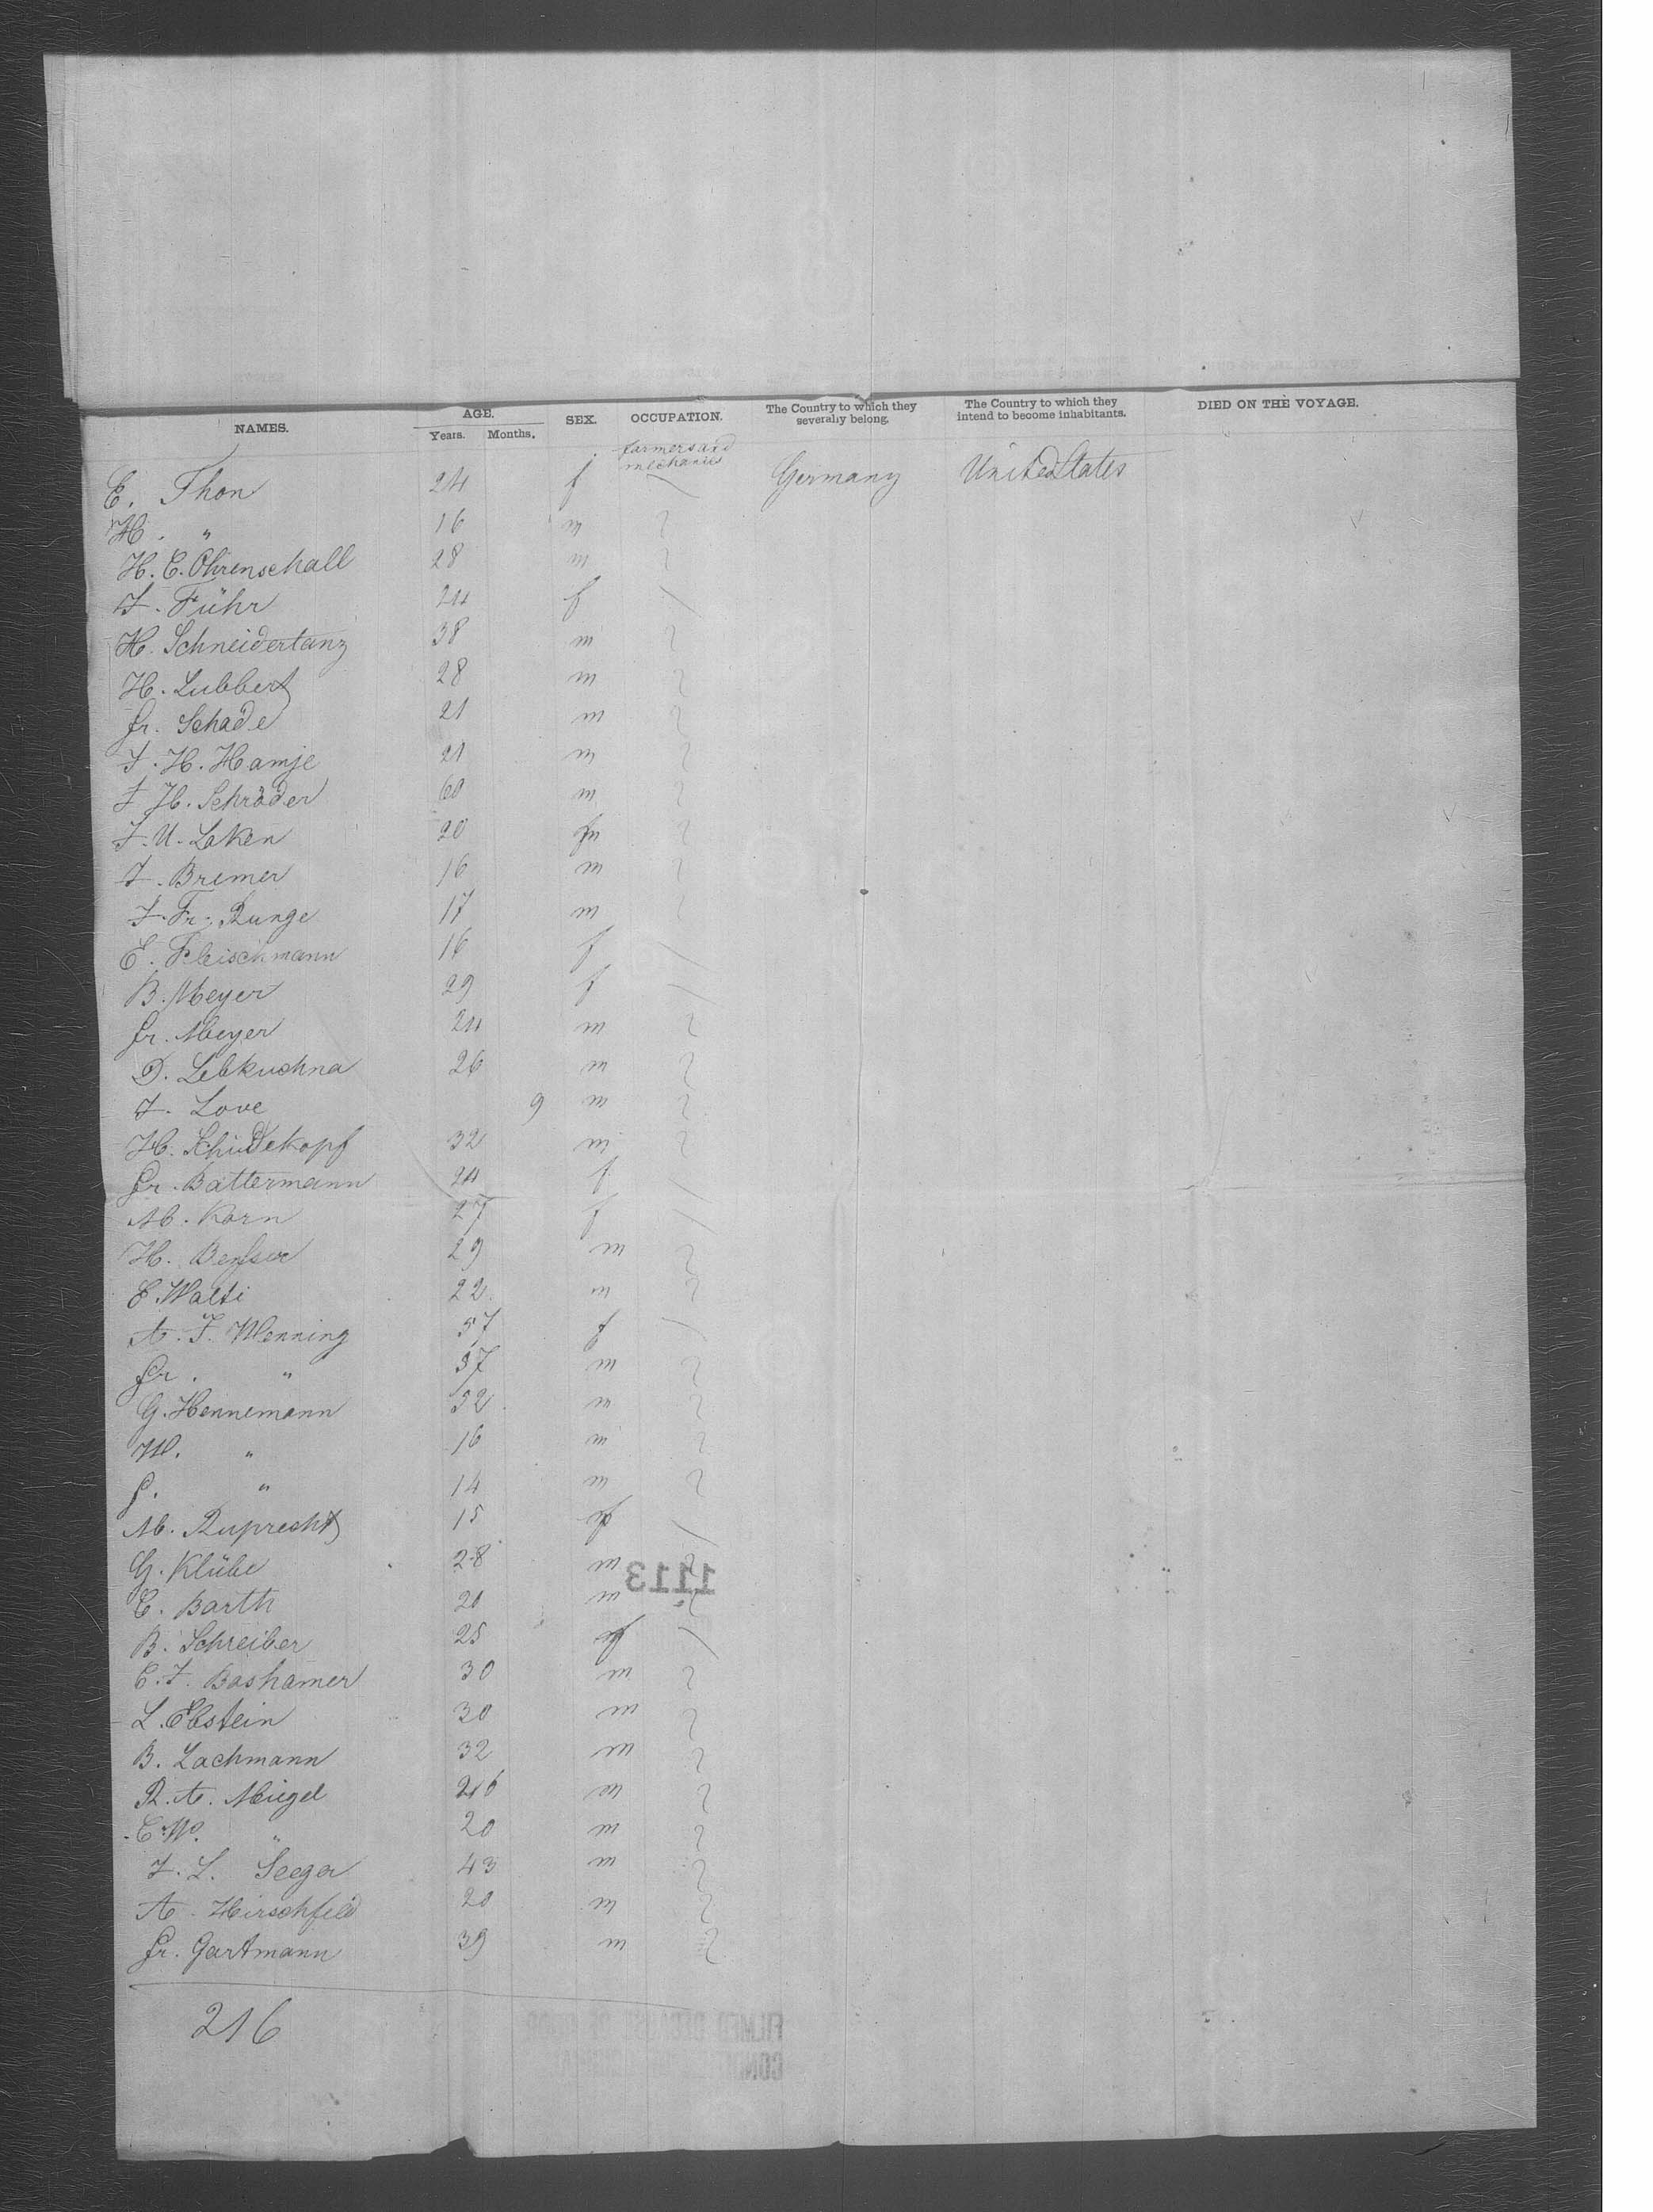 NAMES. AGE. Years. Months. SEX. OCCUPATION. The Country to which they severally belong. The Country to which they intend to become inhabitants. DIED ON THE VOYAGE.
farmers and mechanics
E. Thon 24 f Germany United States
H. " 16 m
H. E. Ohrenschall 28 m
J. Führ 24 f
H. Schneidertanz 38 m
H. Lubbert 28 m
Fr. Schade 21 m
J. H. Hamje 21 m
J. H. Schröder 60 m
J. U. Laken 20
J. Bremer 16 m
J. Fr. Runge 17 m
E. Fleischmann 16 f
B. Meyer 29 f
Fr. Meyer 24 m
D. Lebkuchna 26 m
J. Love 9 m
H. Schüdekopf 32 m
Fr. Battermann 24 f
M. Korn 27 f
H. 29 m
E. Walti 22 m
A. J. Menning 57 f
Fr. " 37 m
G. Hennemann 32 m
W. " 16 m
F. " 14 m
M. Ruprecht 15 f
G. Klübe 28 m
1113
C. Barth 20 m
B. Schreiber 25 f
C. J. Bashamer 30 m
L. Ebstein 30 m
B. Lachmann 32 m
R. A. Miegel m
C. W. " 20 m
J. L. Seeger 43 m
A. Hirschfeld 20 m
Fr. Gartmann 39 m
216